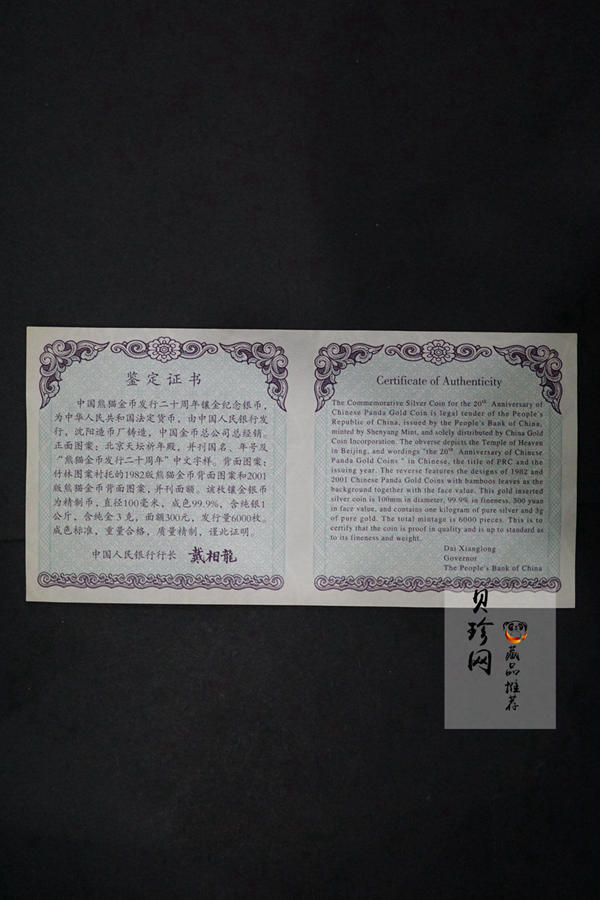 鉴定证书
中国熊猫金币发行二十周年镶金纪念银币，
为中华人民共和国法定货币，由中国人民银行发
行，沈阳造币厂铸造，中国金币总公司总经销。
正面图案：北京天坛祈年殿，并刊国名、年号及
“熊猫金币发行二十周年”中文字样。背面图案：
竹林图案衬托的1982版熊猫金币背面图案和2001
版熊猫金币背面图案，并刊面额。该枚镶金银币
为精制币，直径100毫米，成色99.9%，含纯银1
公斤，含纯金3克，面额300元，发行量6000枚。
成色标准，重量合格，质量精制，谨此证明。
中国人民银行行长 戴相龍
Certificate of Authenticity
The Commemorative Silver Coin for the 20th Anniversary of
Chinese Panda Gold Coin is legal tender of the People's
Republic of China, issued by the People's Bank of China,
minted by Shenyang Mint, and solely distributed by China Gold
Coin Incorporation. The obverse depicts the Temple of Heaven
in Beijing, and wordings "the 20th Anniversary of Chinese
Panda Gold Coins" in Chinese, the title of PRC and the
issuing year. The reverse features the designs of 1982 and
2001 Chinese Panda Gold Coins with bamboos leaves as the
background together with the face value. This gold inserted
silver coin is 100mm in diameter, 99.9% in fineness, 300 yuan
in face value, and contains one kilogram of pure silver and 3g
of pure gold. The total mintage is 6000 pieces. This is to
certify that the coin is proof in quality and is up to standard as
to its fineness and weight.
Dai Xianglong
Governor
The People's Bank of China
贝珍网
藏品推荐